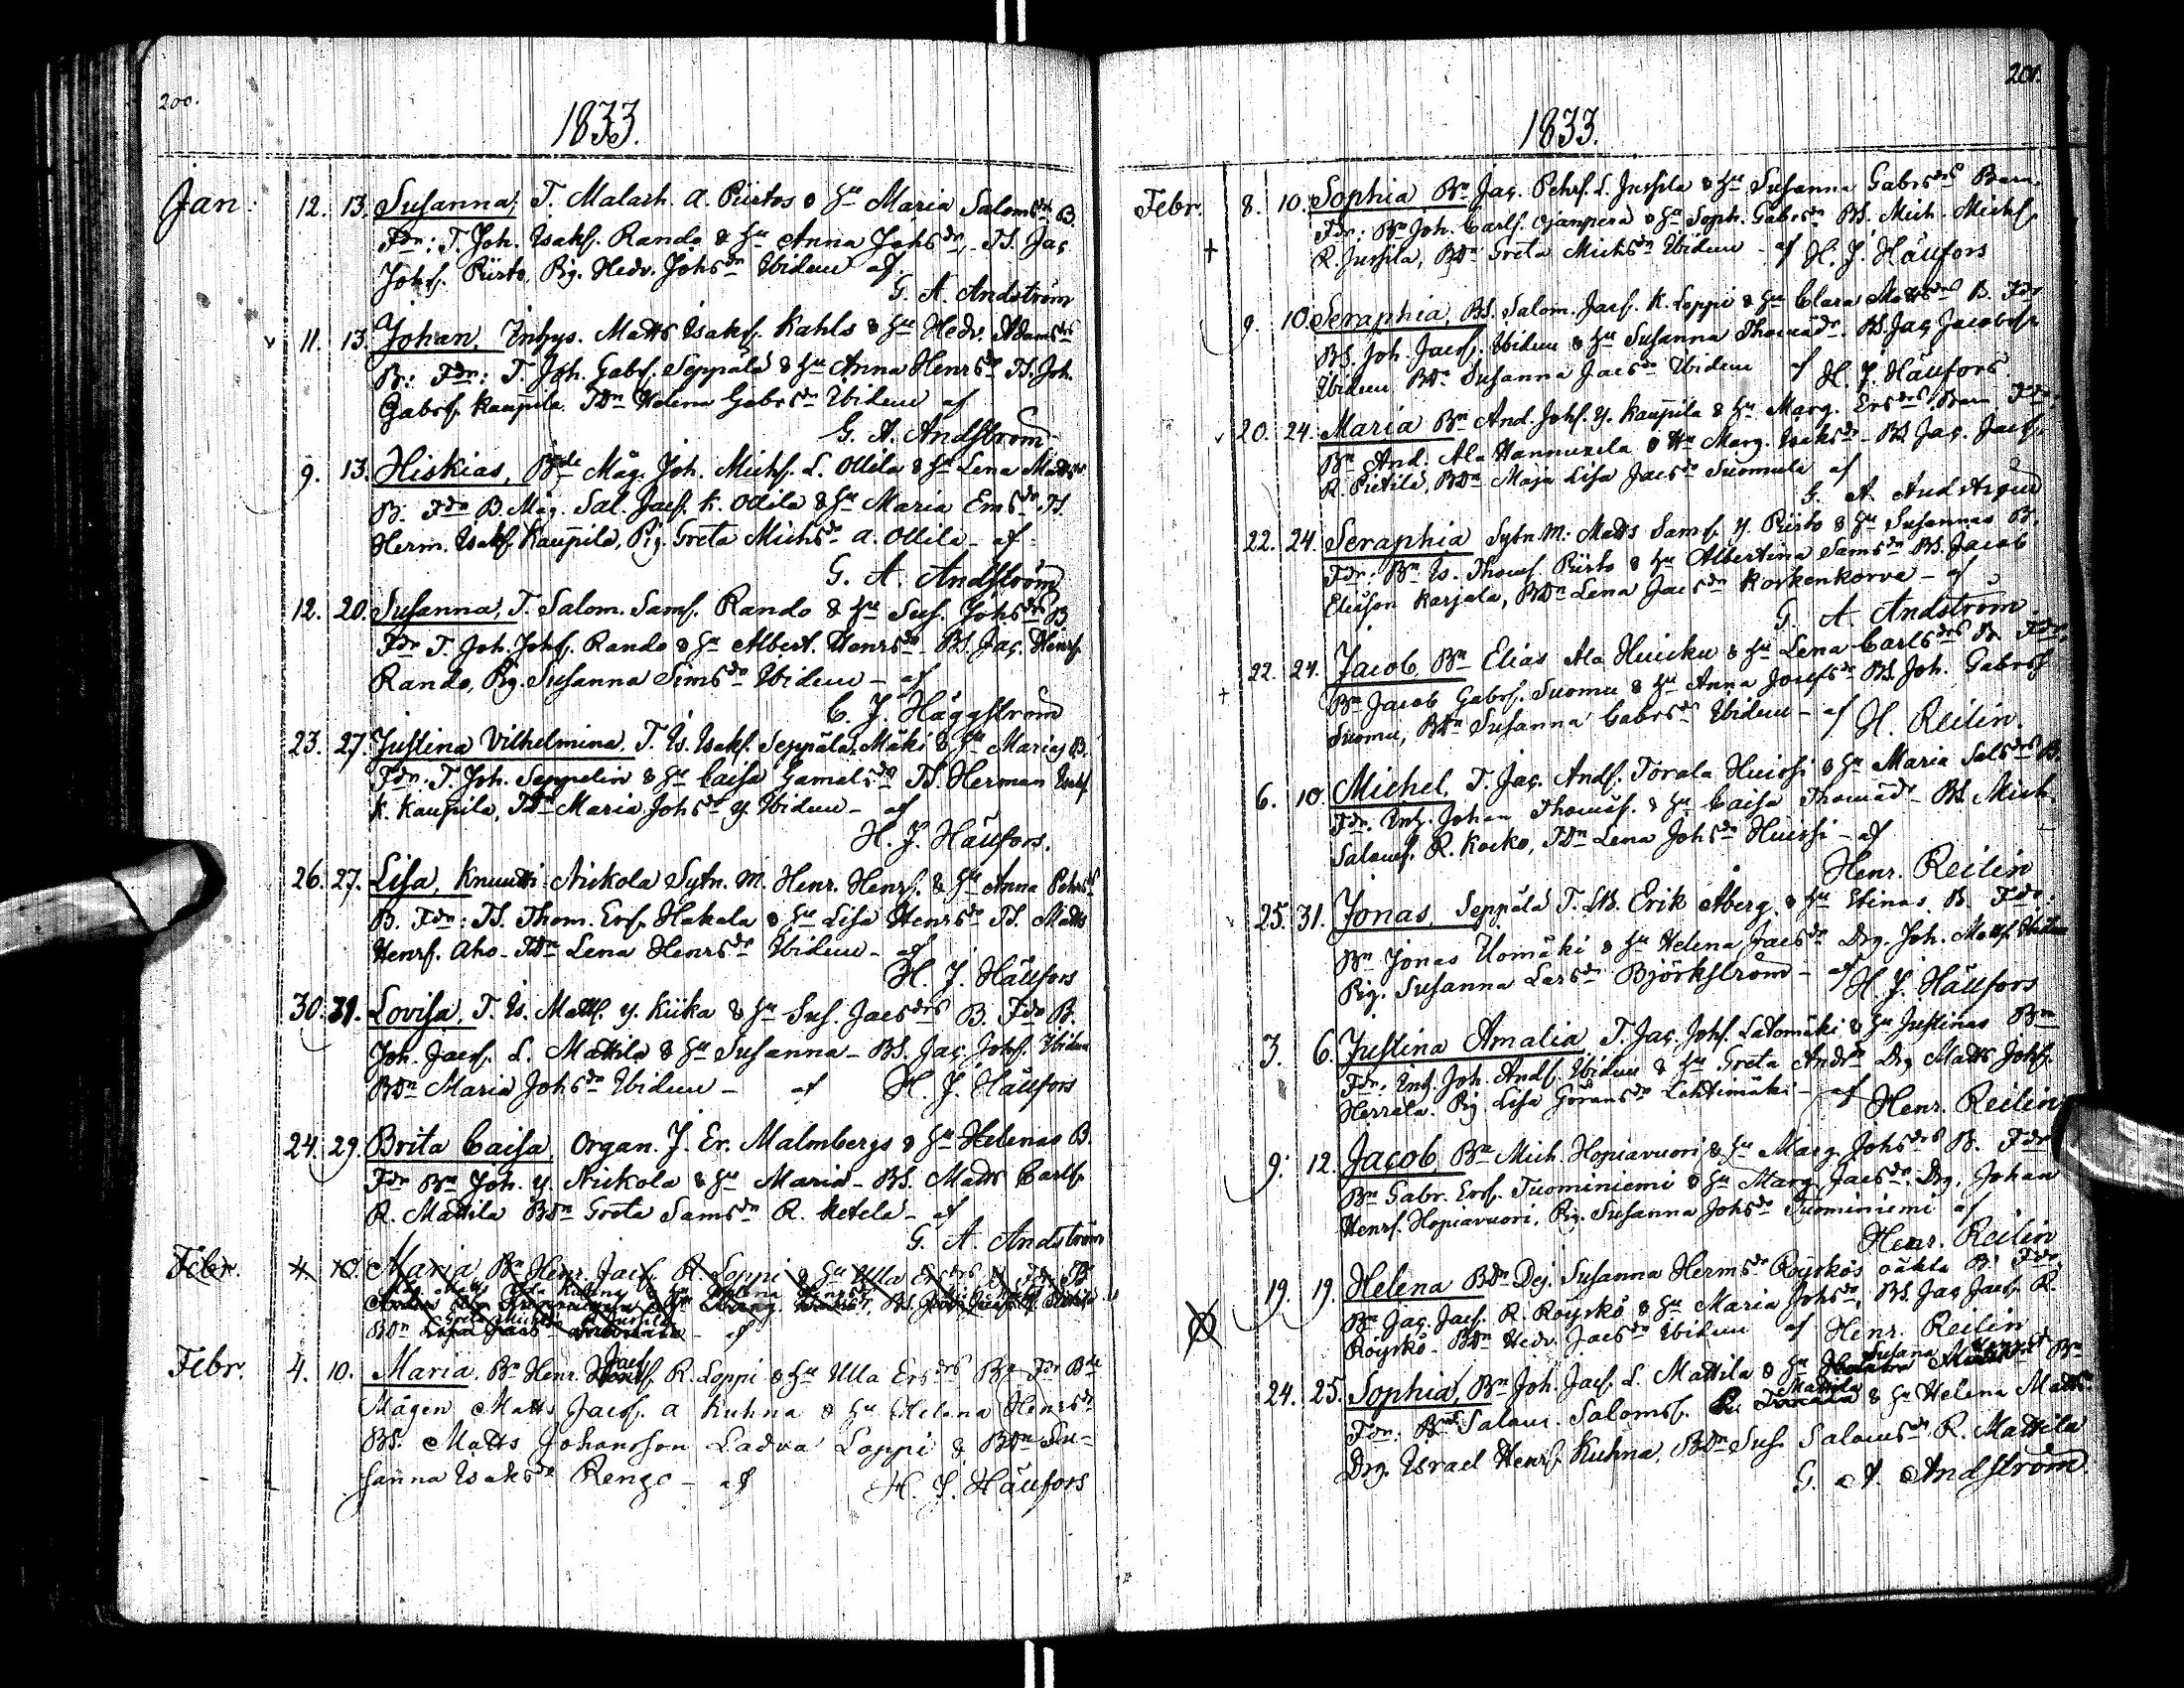 200.
1833.
Jan: 12. 13. Susanna, T. Malach. A. Piirtos & hu Maria Salomsdrs B.
Fdr: T. Joh. Isaks. Rando & hu Anna Johsdr, TS. Jac.
Johs. Piirto, Pig. Hedv. Johsdr Ibidem af
G. A. Andström
11. 13. Johan, Inhys. Matts Isaks. Kahls & hu Hedv. Adamsdrs
B: Fdr: T. Joh. Gabrs. Seppälä & hu Anna Henrsdr TS. Joh.
Gabrs. Kaupila. TDr Helena Gabrsdr Ibidem af
G. A. Andström
9. 13. Hiskias, Bde Måg. Joh. Michs. L. Ollila & hu Lena Mattsdrs
B. Fdr B. Måg. Sal. Jacs. K. Ollila & hu Maria Emsdr TS.
Herm. Isaks. Kaupila, Pig. Greta Michsdr A. Ollila - af
G. A. Andström
12. 20. Susanna, T. Salom. Sams. Rando & hu Sus. Johsdrs B.
Fdr T. Joh. Johs. Rando & hu Albert. Henrsdr BS. Jac. Henrs.
Rando, Pig. Susanna Simsdr Ibidem - af
C. J. Häggström
23. 27. Justina Vilhelmina, T. Is. Isaks. Seppälä Mäki & hu Marias B.
Fdr. T. Joh. Seppelin & hu Caisa Gamalsdr TS. Herman Isaks.
K. Kaupila, TDr Maria Johsdr Y. Ibidem - af
H. J. Häufors.
26. 27. Lisa, Knuutti-Nickola Sytn. M. Henr. Henrs. & hu Anna Pehrsdrs
B. Fdr: TS. Thom. Ers. Hakala & hu Lisa Henrsdr TS. Matts
Henrs. Aho - TDr Lena Henrsdr Ibidem - af
H. J. Häufors
30. 31. Lovisa, T. Is. Matts. Y. Kiika & hu Sus. Jacsdrs B. Fdr B.
Joh. Jacs. L. Mattila & hu Susanna - BS. Jac. Johs. Ibidem
BDr Maria Johsdr Ibidem - af H. J. Häufors
24. 29. Brita Caisa, Organ. J. Er. Malmbergs & hu Helenas B.
Fdr Bn Joh. Y. Nickola & hu Maria - BS. Matts Carls.
R. Mattila BDr Greta Samsdr R. Ketela - af
G. A. Andström
Febr. 4. 10. Maria Bn Henr. Jacs. R. Loppi & hu Ulla Ersdrs B. Fdr B
BDr af
Febr. 4. 10. Maria, Bn Henr. Jacs. R. Loppi & hu Ulla Ersdrs B - Fdr Bde
Mågen Matts Jacs. A Kuhna & hu Helena Henrsdr
BS. Matts Johansson Ladva Loppi & BDr Su-
sanna Isaksdr Rengo - af H. J. Häufors
201.
1833.
Febr. 8. 10. Sophia, Bn Jac. Pehrs. L. Jussila & hu Susanna Gabrsdrs Barn.
Fdr: Bn Joh. Carls. Ojanpera & hu Soph. Gabrsdr BS. Mich. Michs.
R. Jussila, BDr Greta Michsdr Ibidem - af H. J. Häufors
9. 10. Seraphia, BS. Salom. Jacs. K. Loppi & hu Clara Mattsdrs B. Fdr
BS. Joh. Jacs. Ibidem & hu Susanna Thomædr. BS. Jac. Jacobss.
Ibidem BDr Susanna Jacsdr Ibidem af H. J. Häufors.
20. 24. Maria Bn And. Johs. Y. Kaupila & hu Marg. Ersdrs Barn Fdr:
Bn And. Ala Hannuxela & Hu Marg. Isaksdr - BS. Jac. Jacs.
R. Pietilä, BDr Maja Lisa Jacsdr Suomela af
G. A. Andström
22. 24. Seraphia Sytn. M: Matts Sams. Y. Piirto & hu Susannas B.
Fdr: Bn Is. Thoms. Piirto & hu Albertina Samsdr BS. Jacob
Eliasson Karjala, BDr Lena Jacsdr Korkenkorva - af
G. A. Andström.
22. 24. Jacob, Bn Elias Ala Huicku & hu Lena Carlsdrs B. Fdr
Bn Jacob Gabrs. Suomu & hu Anna Josefsdr BS. Joh. Gabrss
Suomu, BDr Susanna Gabrsdr Ibidem - af H. Reilin.
6. 10. Michel, T. Jac. Ands. Torala Huissi & hu Maria Salsdrs B.
Fdr. Inh. Johan Thomæs. & hu Caisa Thomædr - BS. Mich.
Saloms. R. Kocko, TDr Lena Johsdr Huissi - af
Henr. Reilin
25. 31. Jonas, Seppälä T. LB. Erik Åberg & hu Stinas B. Fdr:
Bn Jonas Uomäki & hu Helena Jacsdr Drg. Joh. Matts. Ibidem
Pig. Susanna Larsdr Björkström - af H. J. Häufors
3. 6. Justina Amalia, T. Jac. Johs. Latomäki & hu Justinas Bn
Fdr. Inh. Joh. Ands. Ibidem & hu Greta Andrsdr Drg Matts Johs.
Herrala. Pig Lisa Göransdr Lahtimäki - af Henr. Reilin
9. 12. Jacob, Bn Mich. Hopiavuori & hu Marg. Johsdrs B. Fdr
Bn Gabr. Ers. Tuominiemi & hu Marg. Jacsdr. Drg. Johan
Henrs. Hopiavuori, Pig. Susanna Johsdr Tuominiemi af
Henr. Reilin
19. 19. Helena BDr Dej. Susanna Hermsdr Röyskös oäkta B. Fdr
Bn Jac. Jacs. R. Röyskö & hu Maria Johsdr, BS. Jac Jacs. R.
Röyskö - BDr Hedv. Jacsdr Ibidem af Henr. Reilin
24. 25. Sophia, Bn Joh. Jacs. L. Mattila & hu Susana Bn
Fdr: Bns Salom. Salomss. Mattila & hu Helena Mattsdr
Drg. Israel Henrs. Kuhna, BDr Sus. Salomsdr R. Mattila
G. A. Andström